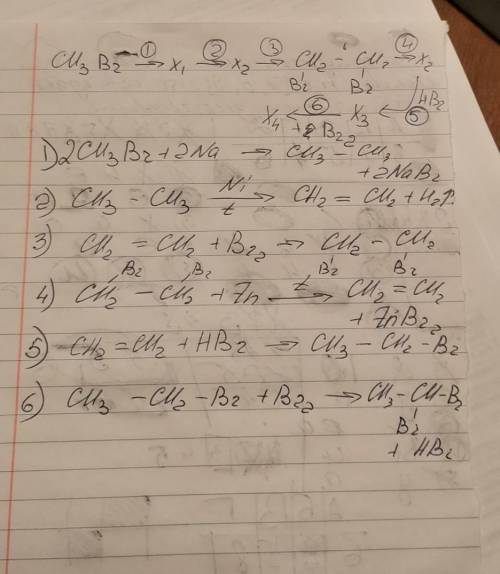 CH3 Br ① → X1 ② → X2 ③ → CH2 - CH2 ④ → X2
Br Br
X4 ← ⑥ X3 ← ⑤ HBr
+ 2 Br2
1) 2CH3Br + 2Na → CH3 - CH3
+ 2NaBr
2) CH3 - CH3 Ni → t CH2 = CH2 + H2↑
3) CH2 = CH2 + Br2 → CH2 - CH2
Br Br
4) CH2 - CH2 + Zn t → CH2 = CH2
Br Br
+ ZnBr2
5) CH2 = CH2 + HBr → CH3 - CH2 - Br
6) CH3 - CH2 - Br + Br2 → CH3 - CH - Br
Br
+ HBr